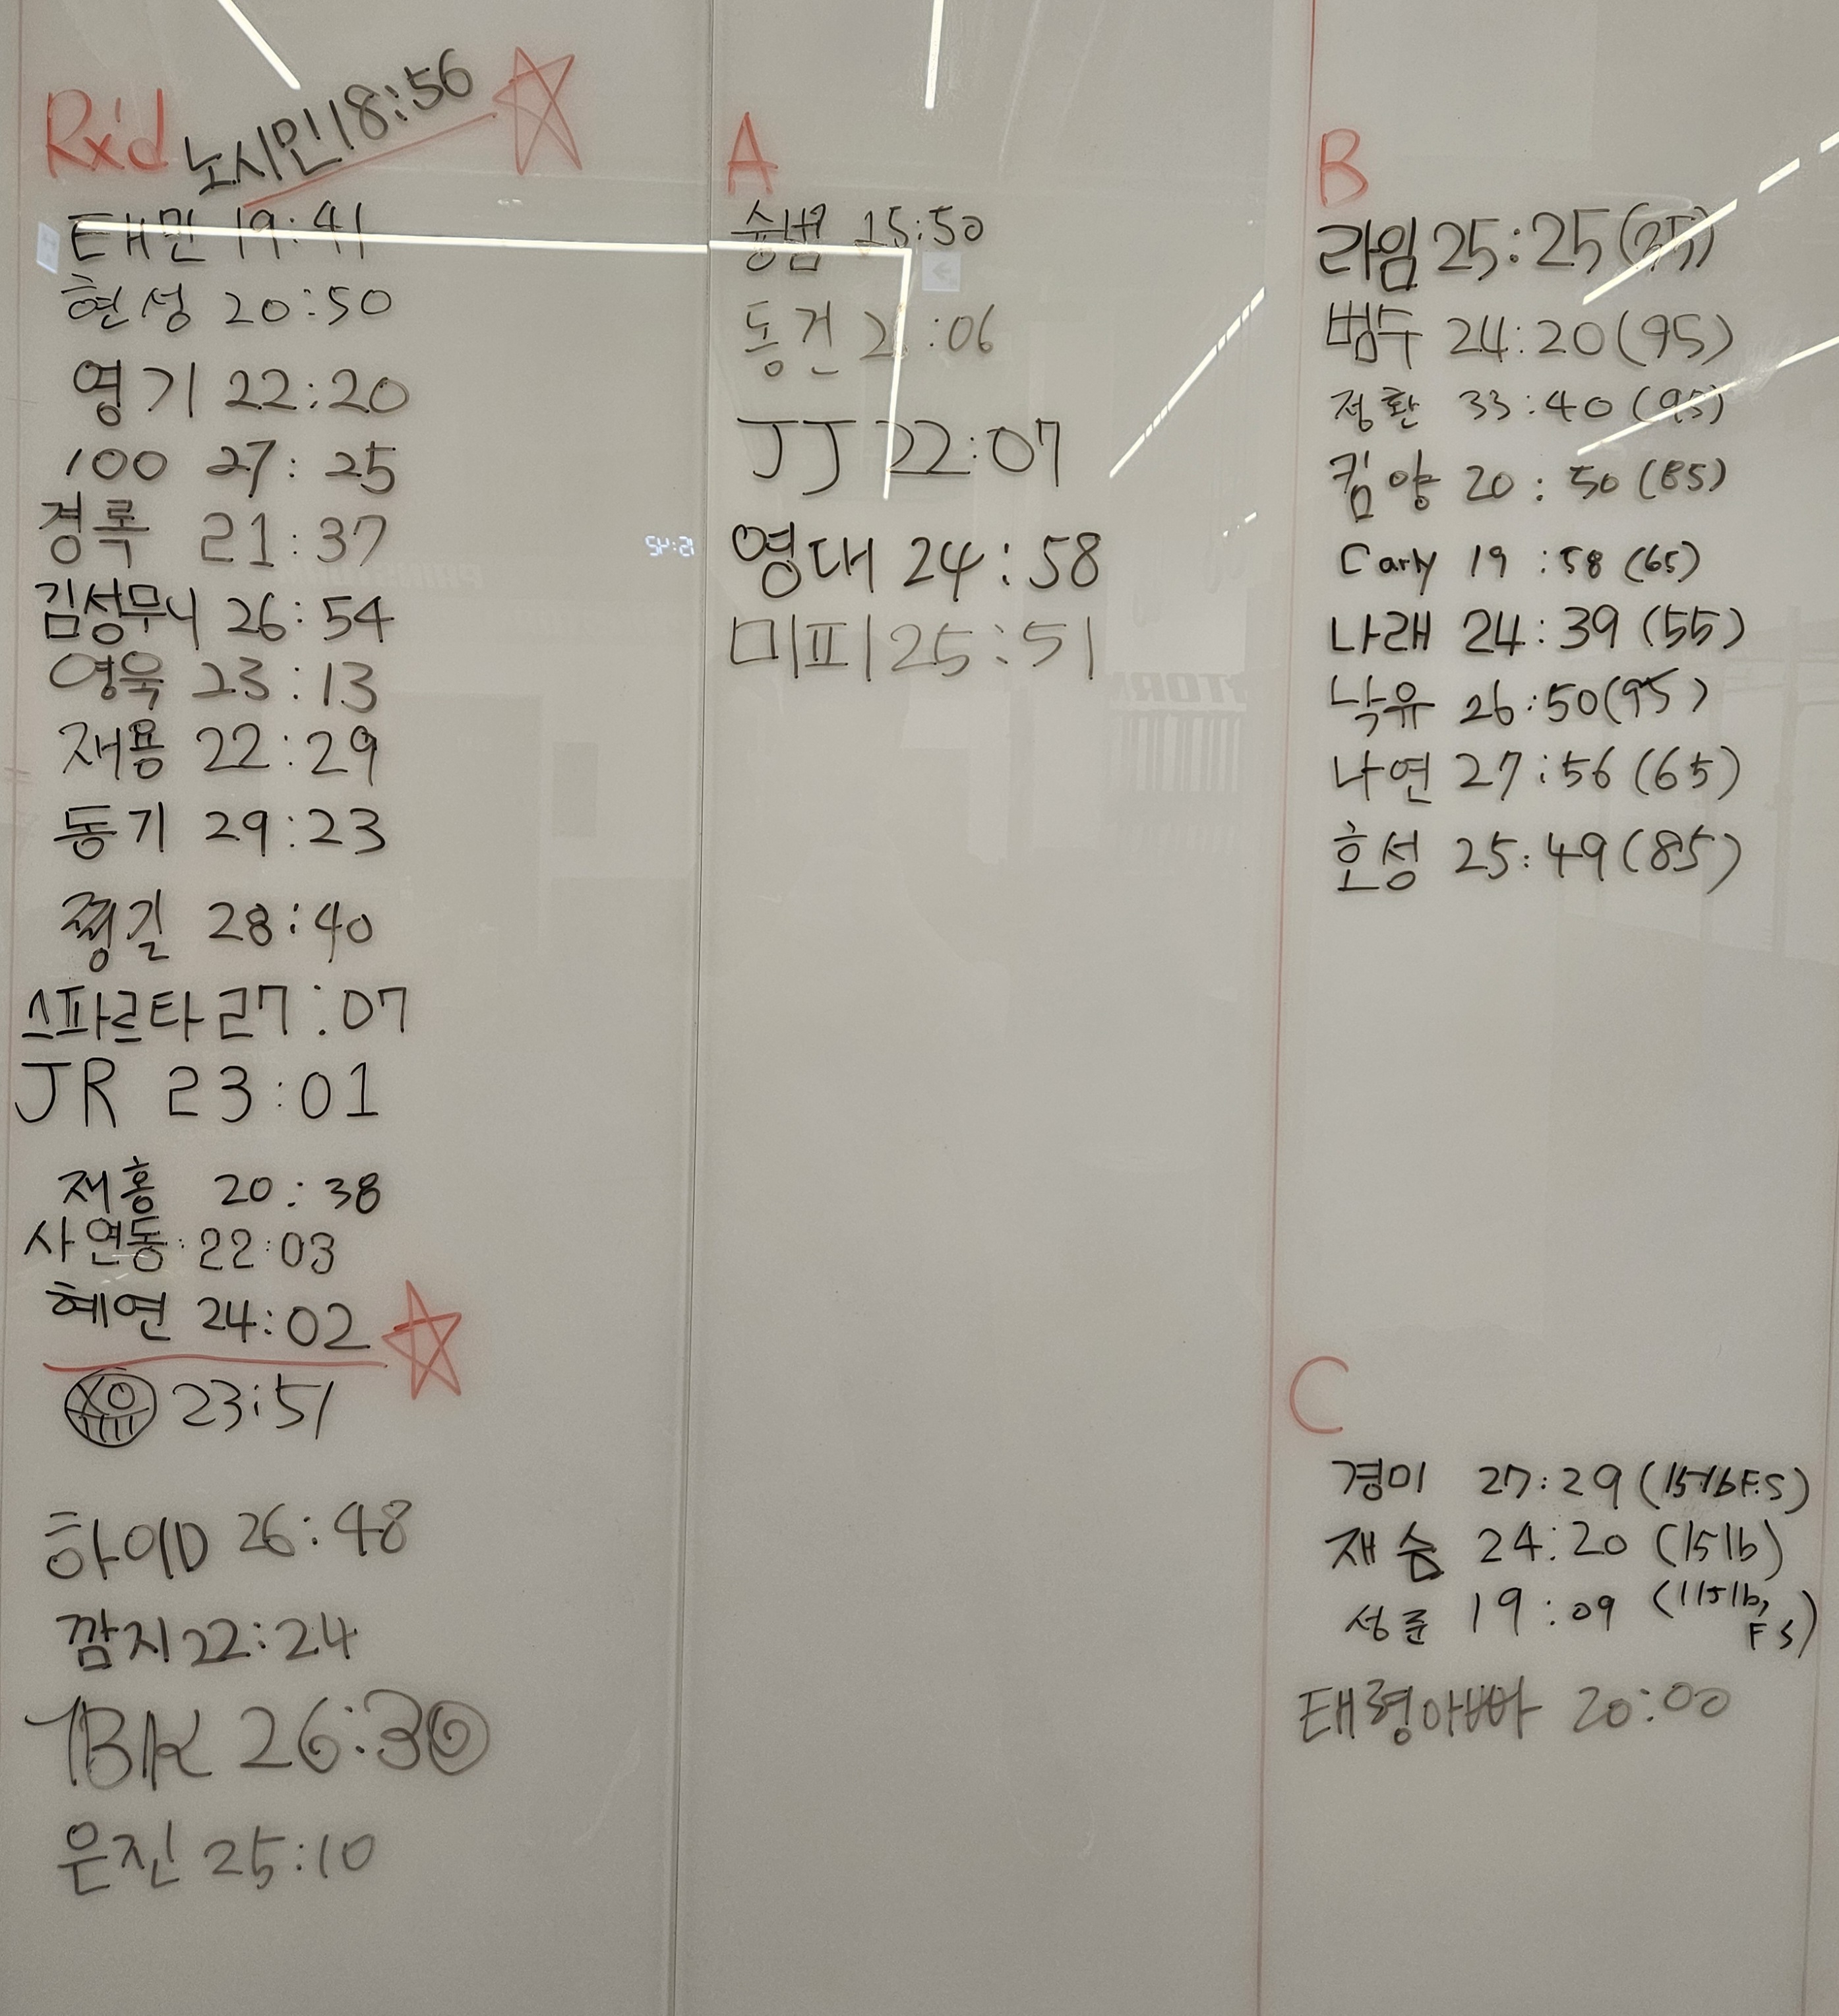 Rx'd 노시민 18:56
태민 19:41
현성 20:50
영기 22:20
100 27:25
경록 21:37
김성무니 26:54
영욱 23:13
재용 22:29
동기 29:23
쩡길 28:40
스파르타 27:07
JR 23:01
재홍 20:38
사연동: 22:03
혜연 24:02
23:51
하이D 26:48
깜지 22:24
26:30
은진 25:10
A
승범 15:50
동건 :06
JJ 22:07
영대 24:58
미피 25:51
B
라임 25:25
범수 24:20 (95)
정환 33:40 (95)
킴양 20:50
Carly 19:58 (65)
나래 24:39 (55)
낙유 26:50 (95)
나연 27:56 (65)
호성 25:49 (85)
C
경미 27:29
재숨 24:20 (15lb)
성준 19:09 (115lb,
FS)
태령아빠 20:00